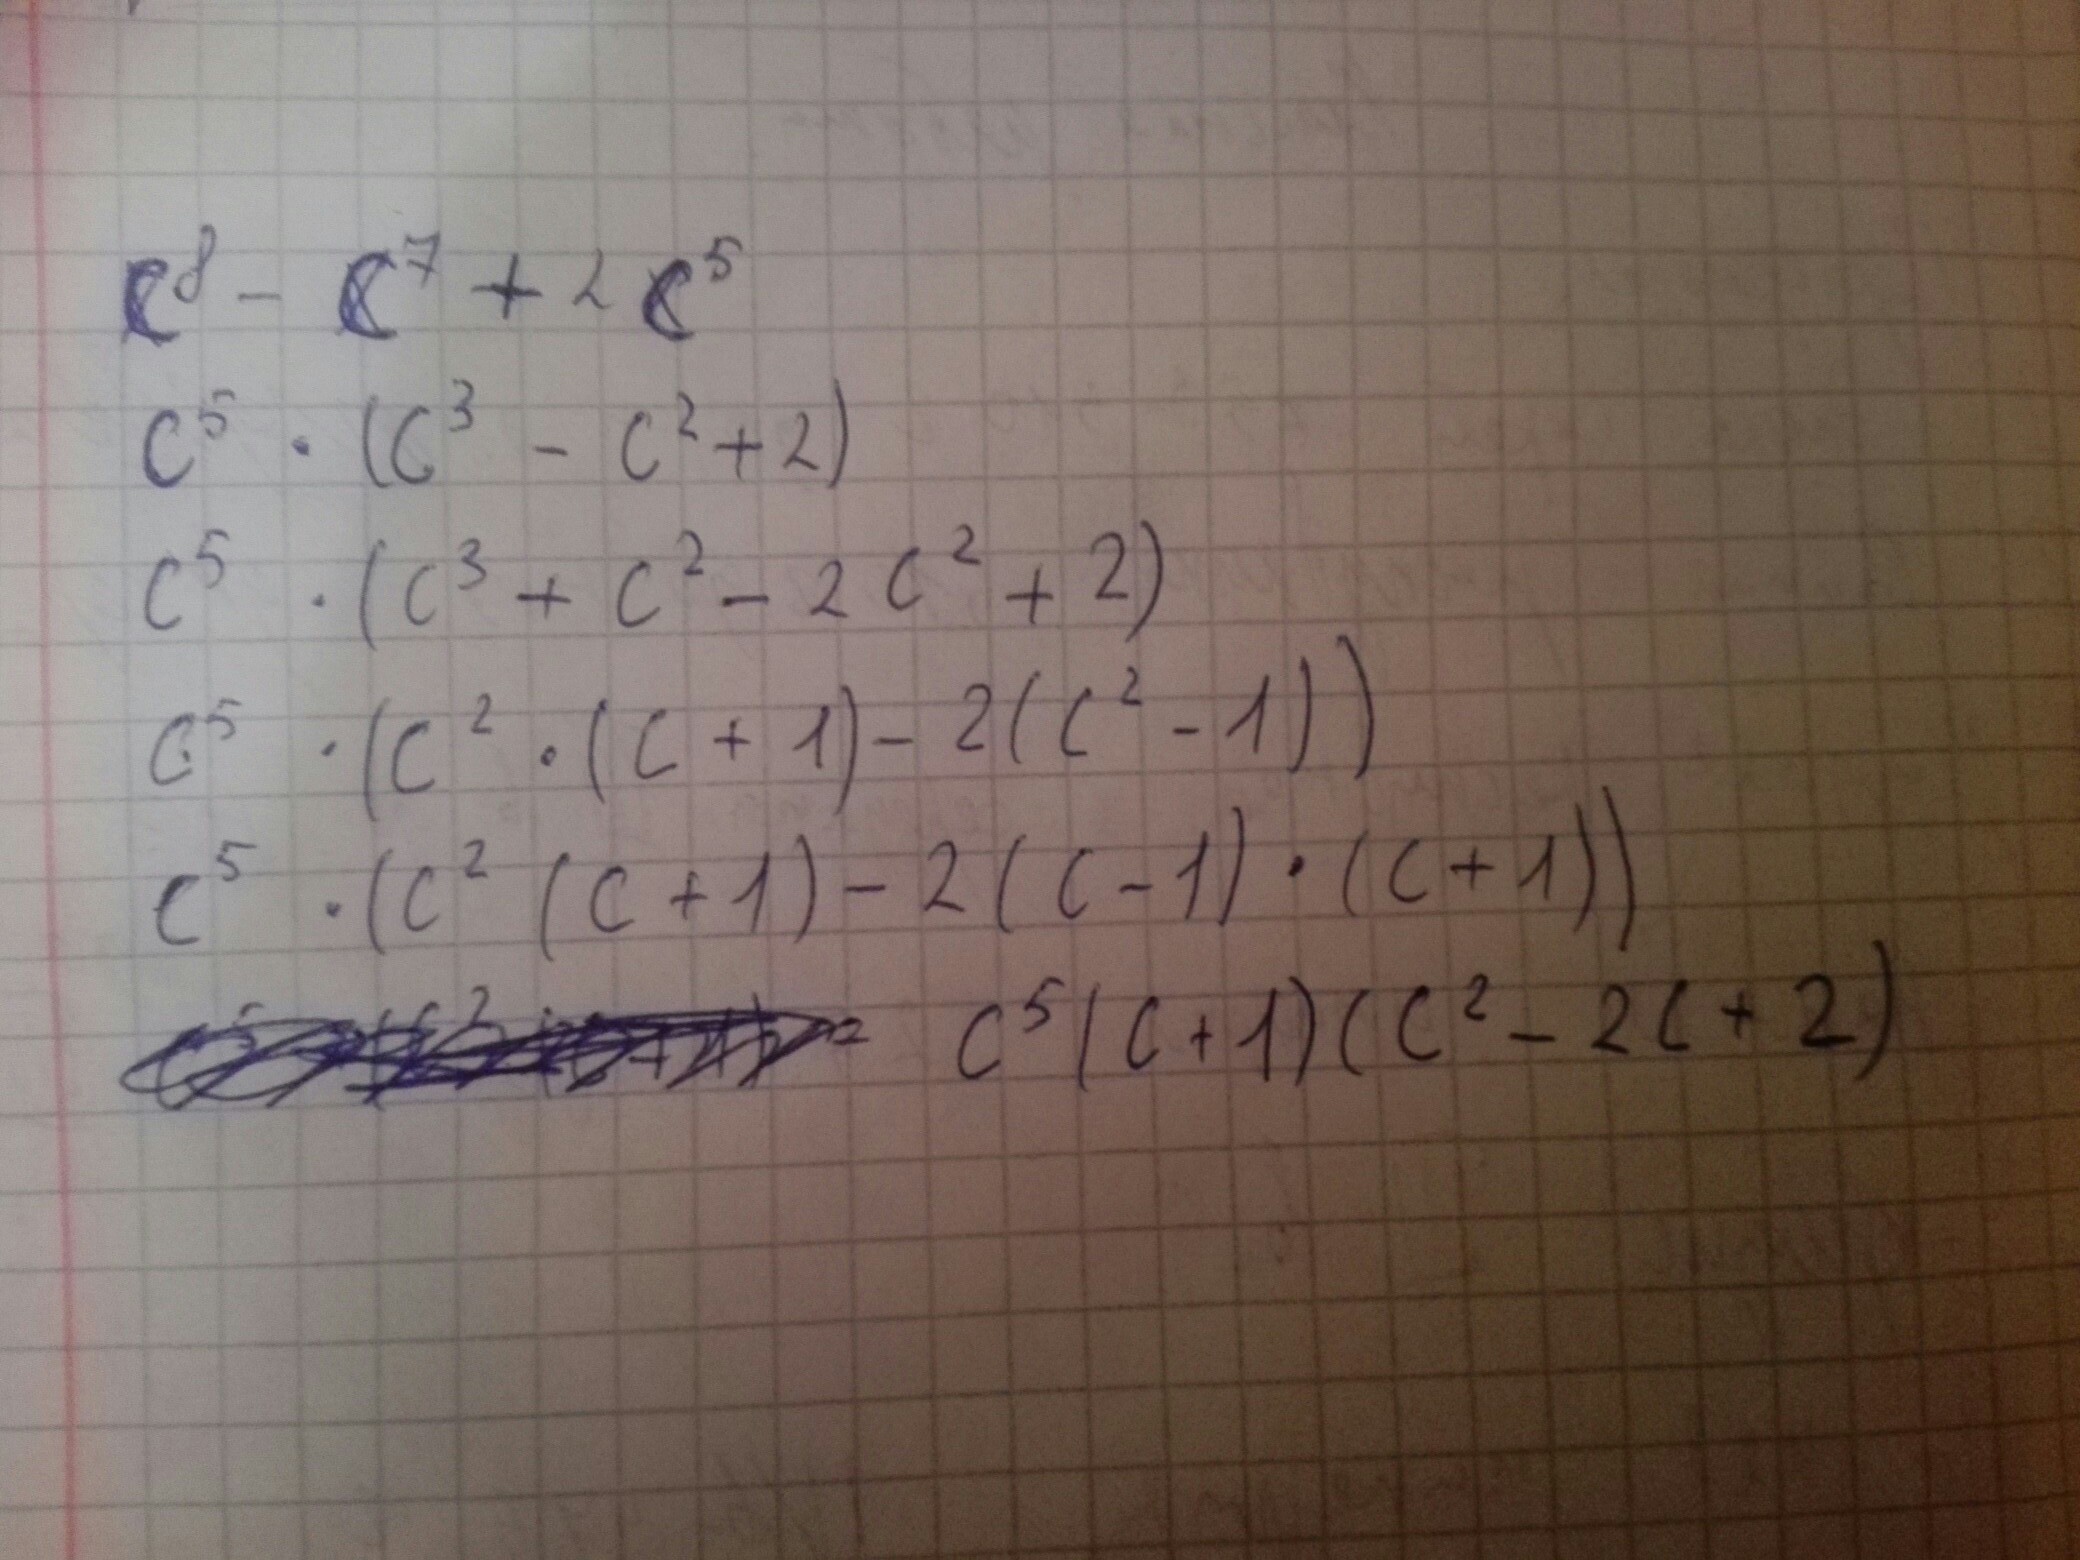 c⁸ - c⁷ + 2c⁵
c⁵ · (c³ - c² + 2)
c⁵ · (c³ + c² - 2c² + 2)
c⁵ · (c² · (c + 1) - 2(c² - 1))
c⁵ · (c² (c + 1) - 2(c - 1) · (c + 1))
c⁵(c + 1)(c² - 2c + 2)